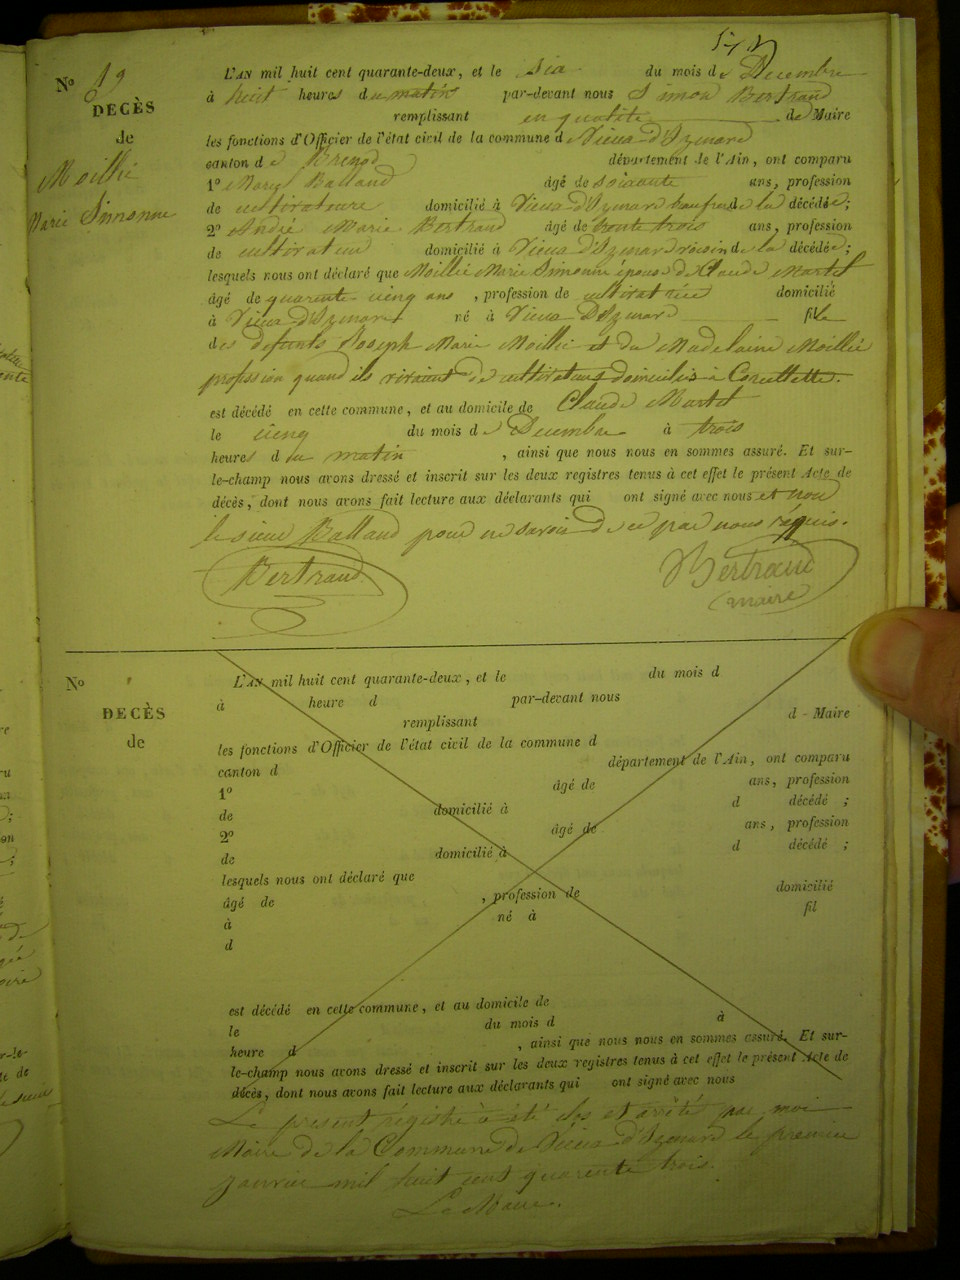 N.o 19
DECÈS
de
Moillie
Marie Simonne
L'AN mil huit cent quarante-deux, et le Six du mois de Decembre
à huit heures du matin par-devant nous Simon Bertrand
remplissant en qualité de Maire
les fonctions d'Officier de l'état civil de la commune de Vieux d'Izenave
canton de Brenod département de l'Ain, ont comparu
1o Balland âgé de soixante ans, profession
de cultivateur domicilié à Vieux d'Izenave beaufrere de la décédée;
2o André Marie Bertrand âgé de trente trois ans, profession
de cultivateur domicilié à Vieux d'Izenave voisin de la décédée;
lesquels nous ont déclaré que Moillie Marie Simonne épouse de Claude Martel
âgé de quarente cinq ans, profession de cultivatrice domicilié
à Vieux d'Izenave né à Vieux D'Izenave fille
des defunts Joseph Marie Moillie et de Madelaine Moillie
profession quand ils vivaient de cultivateurs domicilis à Corcellette.
est décédé en cette commune, et au domicile de Claude Martel
le cinq du mois de Decembre à trois
heures du matin, ainsi que nous nous en sommes assuré. Et sur-
le-champ nous avons dressé et inscrit sur les deux registres tenus à cet effet le présent Acte de
décès, dont nous avons fait lecture aux déclarants qui ont signé avec nous et non
le sieur Balland pour ne savoir de ce par nous réquis.
Bertrand Bertrand
maire
N.o
DECÈS
de
L'AN mil huit cent quarante-deux, et le du mois d
à heure d par-devant nous
remplissant d - Maire
les fonctions d'Officier de l'état civil de la commune d
canton d département de l'Ain, ont comparu
1o âgé de ans, profession
de domicilié à d décédé ;
2o âgé de ans, profession
de domicilié à d décédé ;
lesquels nous ont déclaré que
âgé de , profession de domicilié
à né à fil
d
est décédé en cette commune, et au domicile de
le du mois d à
heure d , ainsi que nous nous en sommes assuré. Et sur-
le-champ nous avons dressé et inscrit sur les deux registres tenus à cet effet le présent Acte de
décès, dont nous avons fait lecture aux déclarants qui ont signé avec nous
Le present régistre à été clos et arrêté par moi
Maire de la Commune de Vieux d'Izenave le premier
janvier mil huit cent quarente trois.
Le Maire.